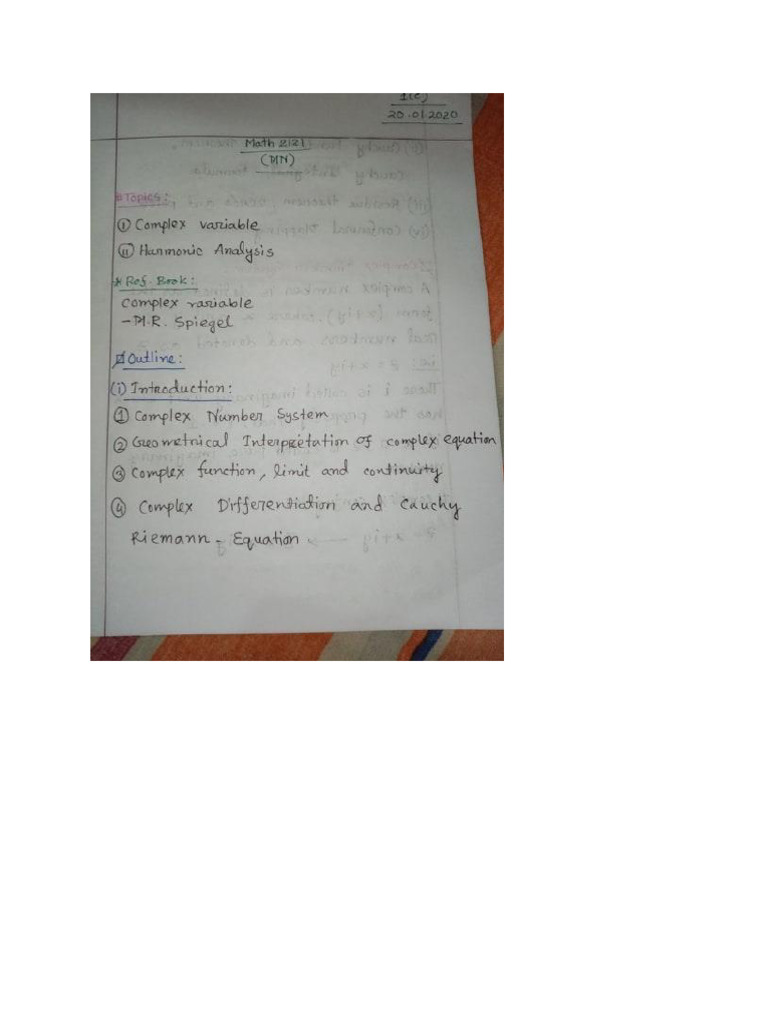 1(c)
20.01.2020
Math 2121
(DIN)
Topics:
(i) Complex variable
(ii) Harmonic Analysis
* Ref. Book:
Complex variable
- M.R. Spiegel
Outline:
(i) Introduction:
① Complex Number System
② Geometrical Interpretation of complex equation
③ Complex function, limit and continuity
④ Complex Differentiation and Cauchy
Riemann - Equation